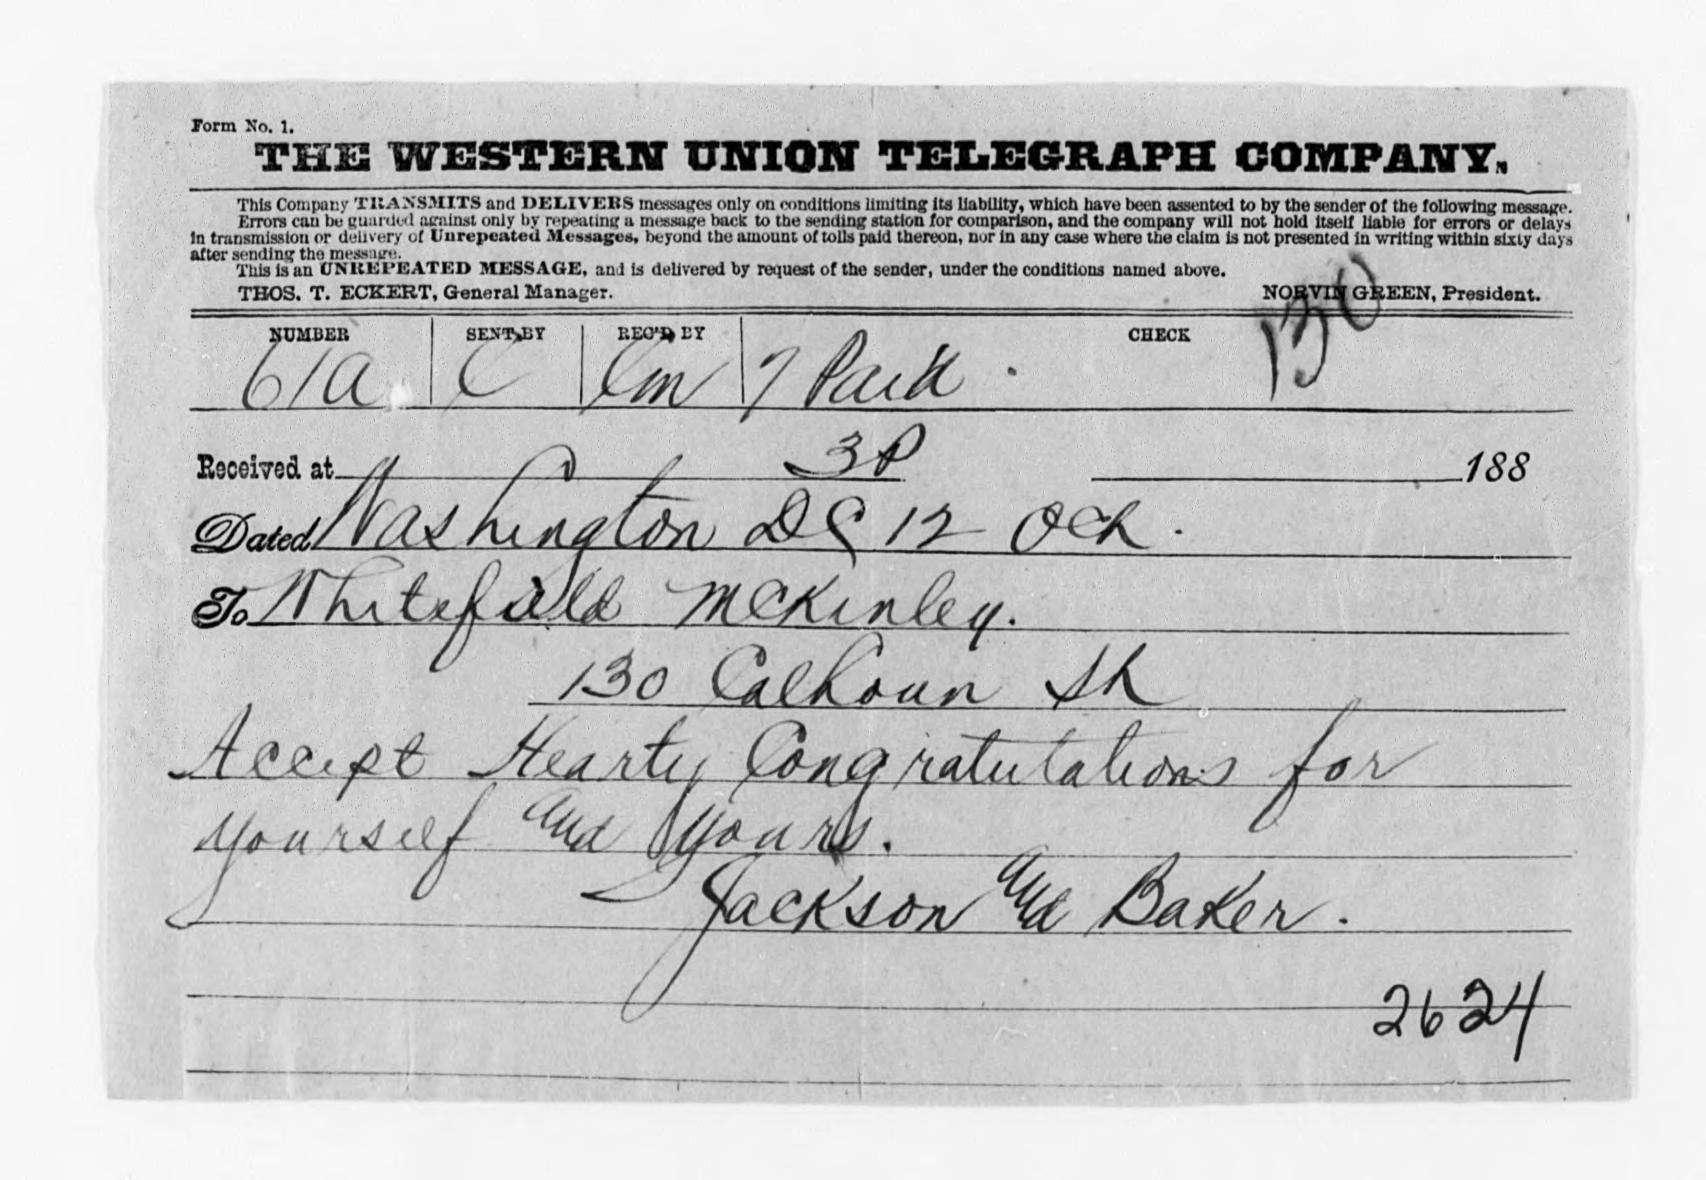 Form No. 1.
THE WESTERN UNION TELEGRAPH COMPANY.
This Company TRANSMITS and DELIVERS messages only on conditions limiting its liability, which have been assented to by the sender of the following message.
Errors can be guarded against only by repeating a message back to the sending station for comparison, and the company will not hold itself liable for errors or delays
in transmission or delivery of Unrepeated Messages, beyond the amount of tolls paid thereon, nor in any case where the claim is not presented in writing within sixty days
after sending the message.
This is an UNREPEATED MESSAGE, and is delivered by request of the sender, under the conditions named above.
THOS. T. ECKERT, General Manager. NORVIN GREEN, President.
130
NUMBER SENT BY REC'D BY CHECK
61a C 7 Paid
Received at 3P 188
Dated Washington DC 12 Oct.
To Whitefield McKinley.
130 Calhoun St
Accept Hearty Congratulations for
yourself and yours.
Jackson and Baker.
2624